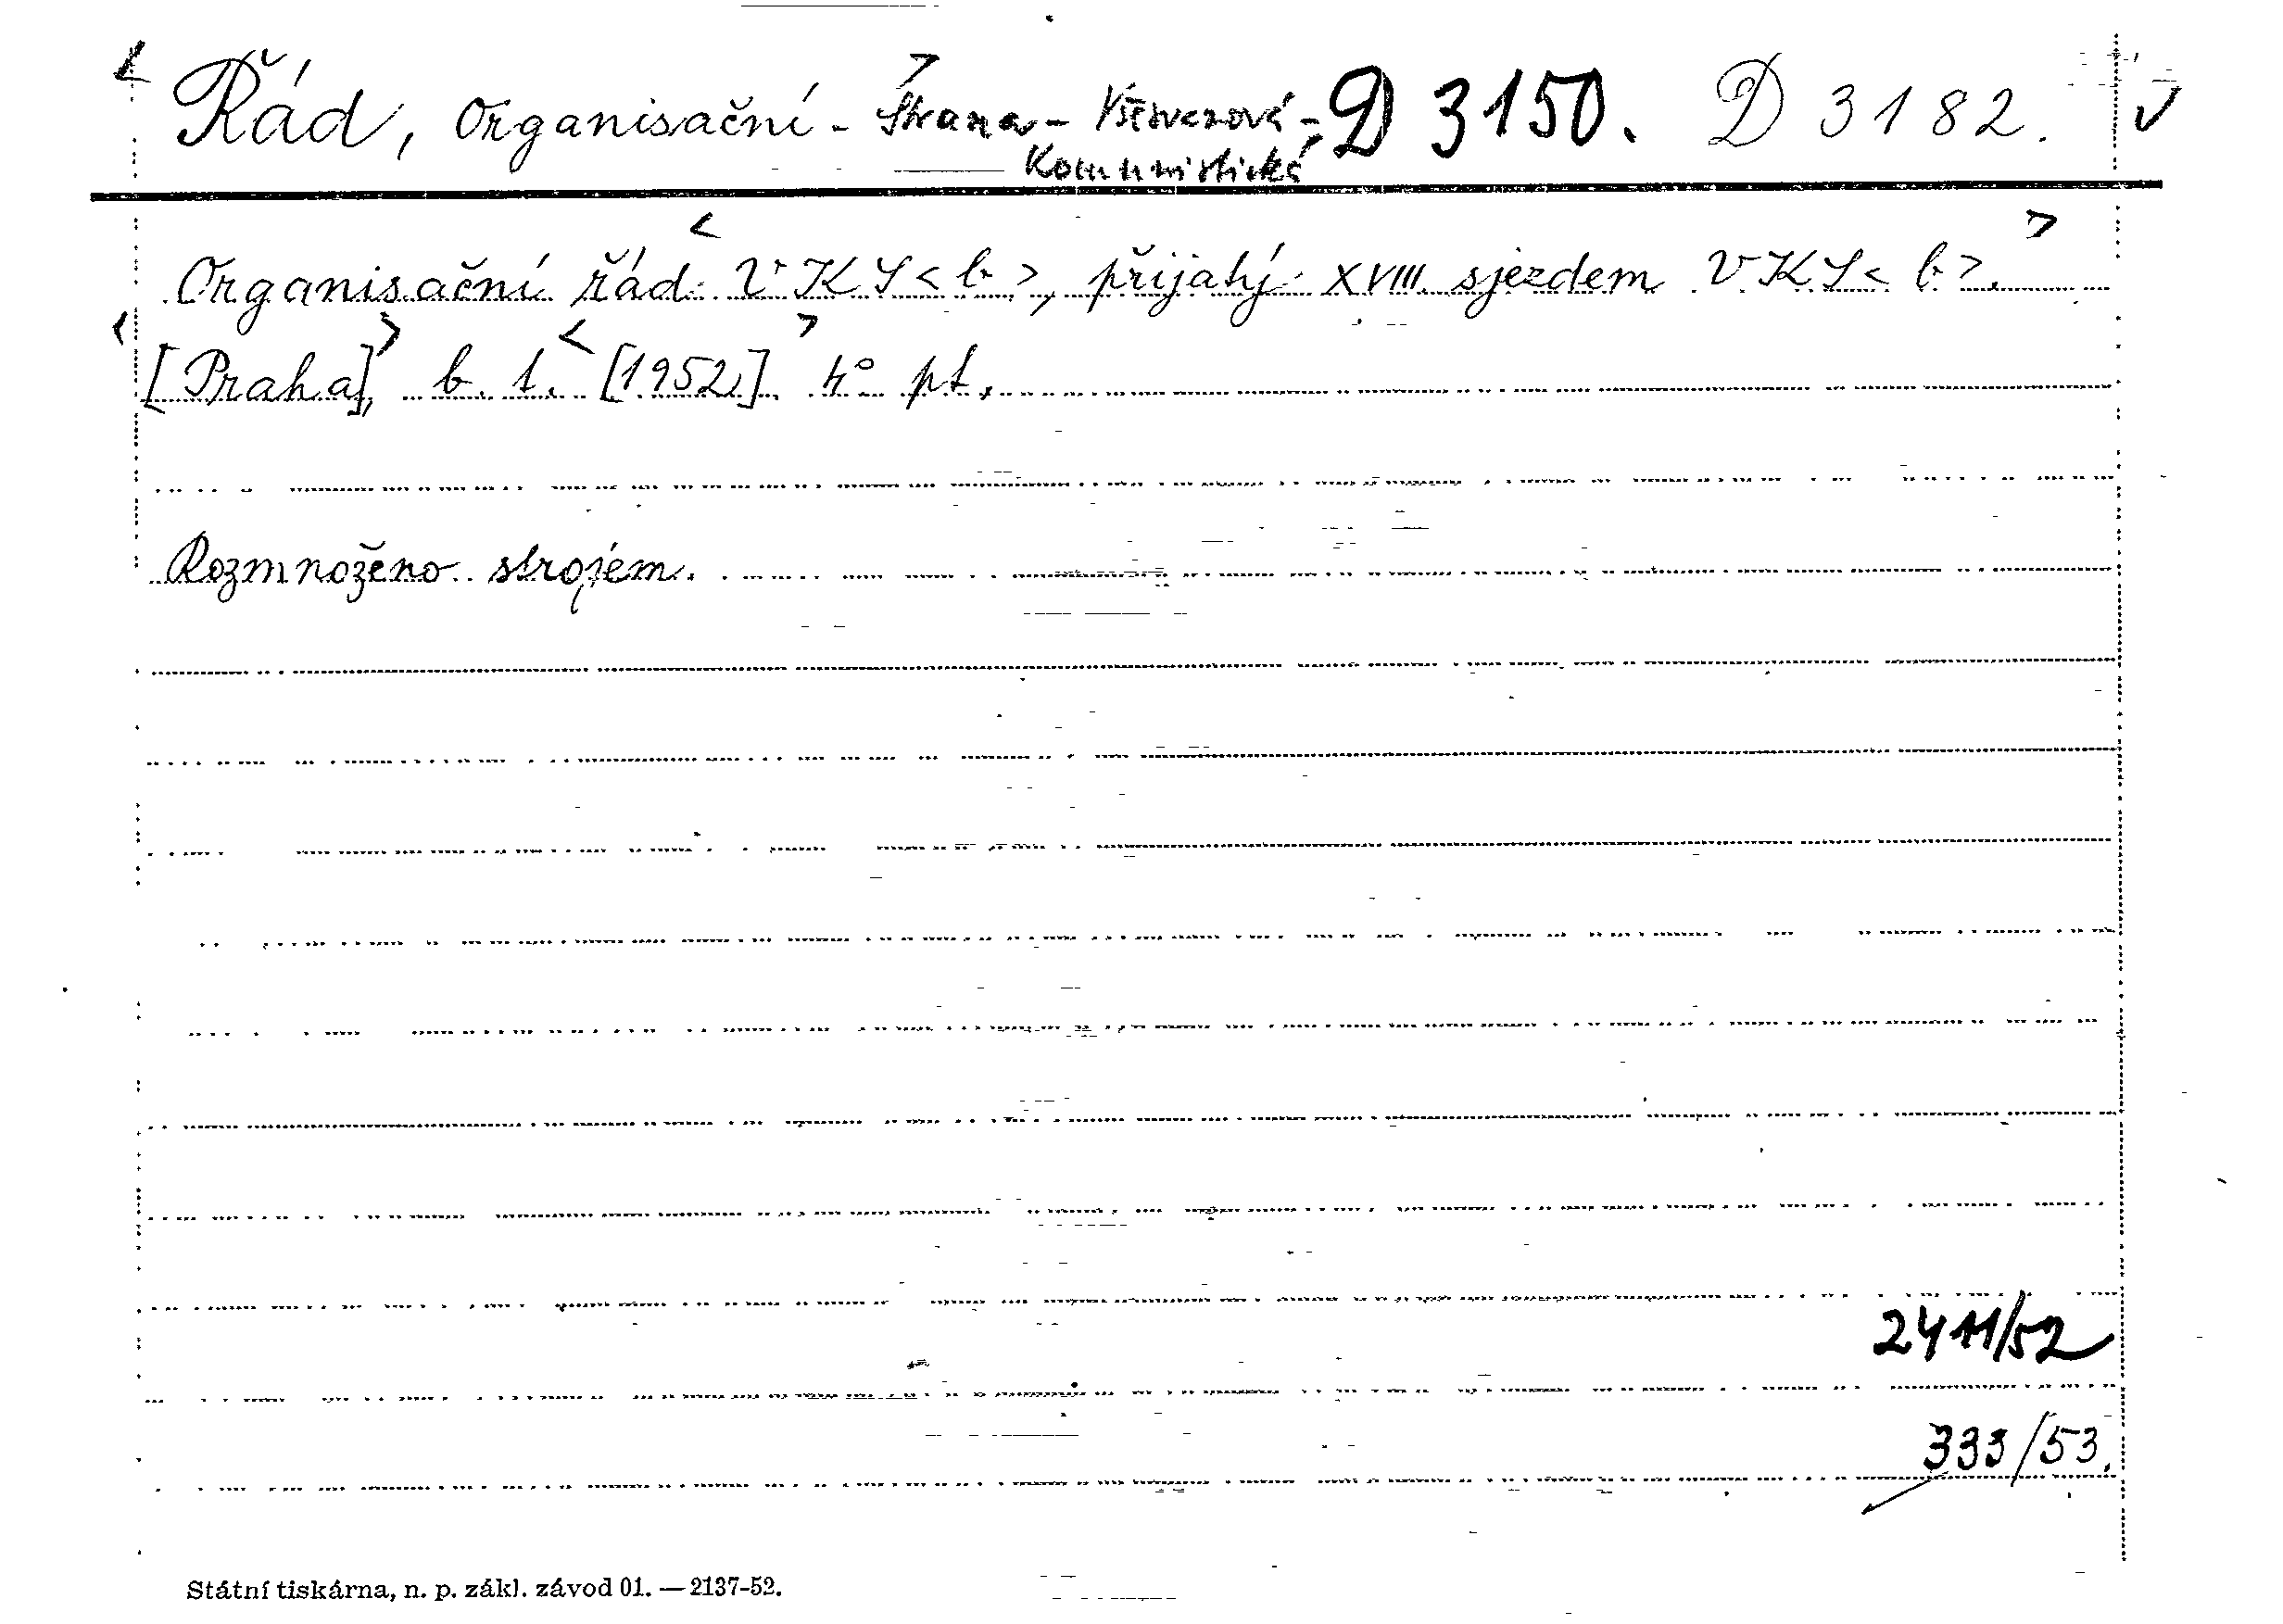 Řád, Organisační - Strana - Všesvazová - D 3150. D 3182. V
Komunistická
Organisační řád VKS<b>, přijatý XVIII. sjezdem VKS<b>.
[Praha], b. t. [1952]. 4° pt.
Rozmnoženo strojem.
2411/52
333/53.
Státní tiskárna, n. p. zákl. závod 01. — 2137-52.